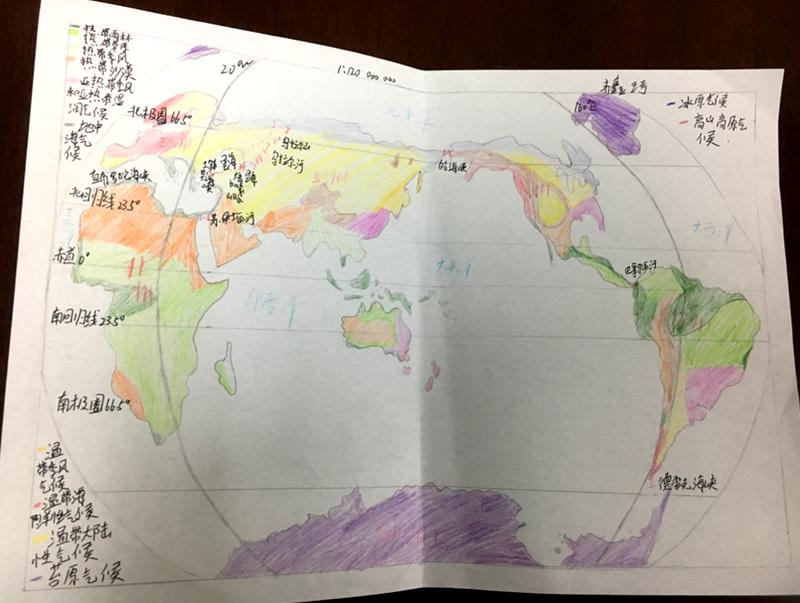 热带雨林
热带草原
热带季风
热带沙漠
亚热带季风
和亚热带湿
润气候
地中
海气
候
20°W
1:120 000 000
北极圈66.5°
乌拉尔山
乌拉尔河
北冰洋
格陵兰岛
160°E
冰原气候
高山高原气
候
直布罗陀海峡
黑海
里海
苏伊士运河
白令海峡
北回归线23.5°
大西洋
赤道0°
太平洋
巴拿马运河
印度洋
南回归线23.5°
南极圈66.5°
德雷克海峡
温
带季风
气候
温带海
洋性气候
温带大陆
性气候
苔原气候